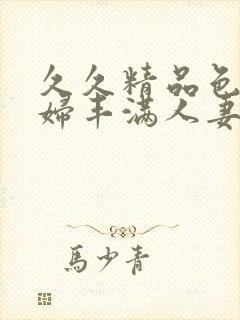 久久精品色
婦丰满人妻
馬少青